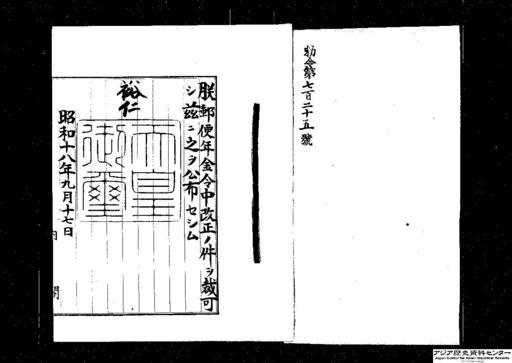 勅令第七百二十五號
朕郵便年金令中改正ノ件ヲ裁可
シ茲ニ之ヲ公布セシム
裕仁
天皇
御璽
昭和十八年九月十七日
内閣
アジア歴史資料センター
Japan Center for Asian Historical Records